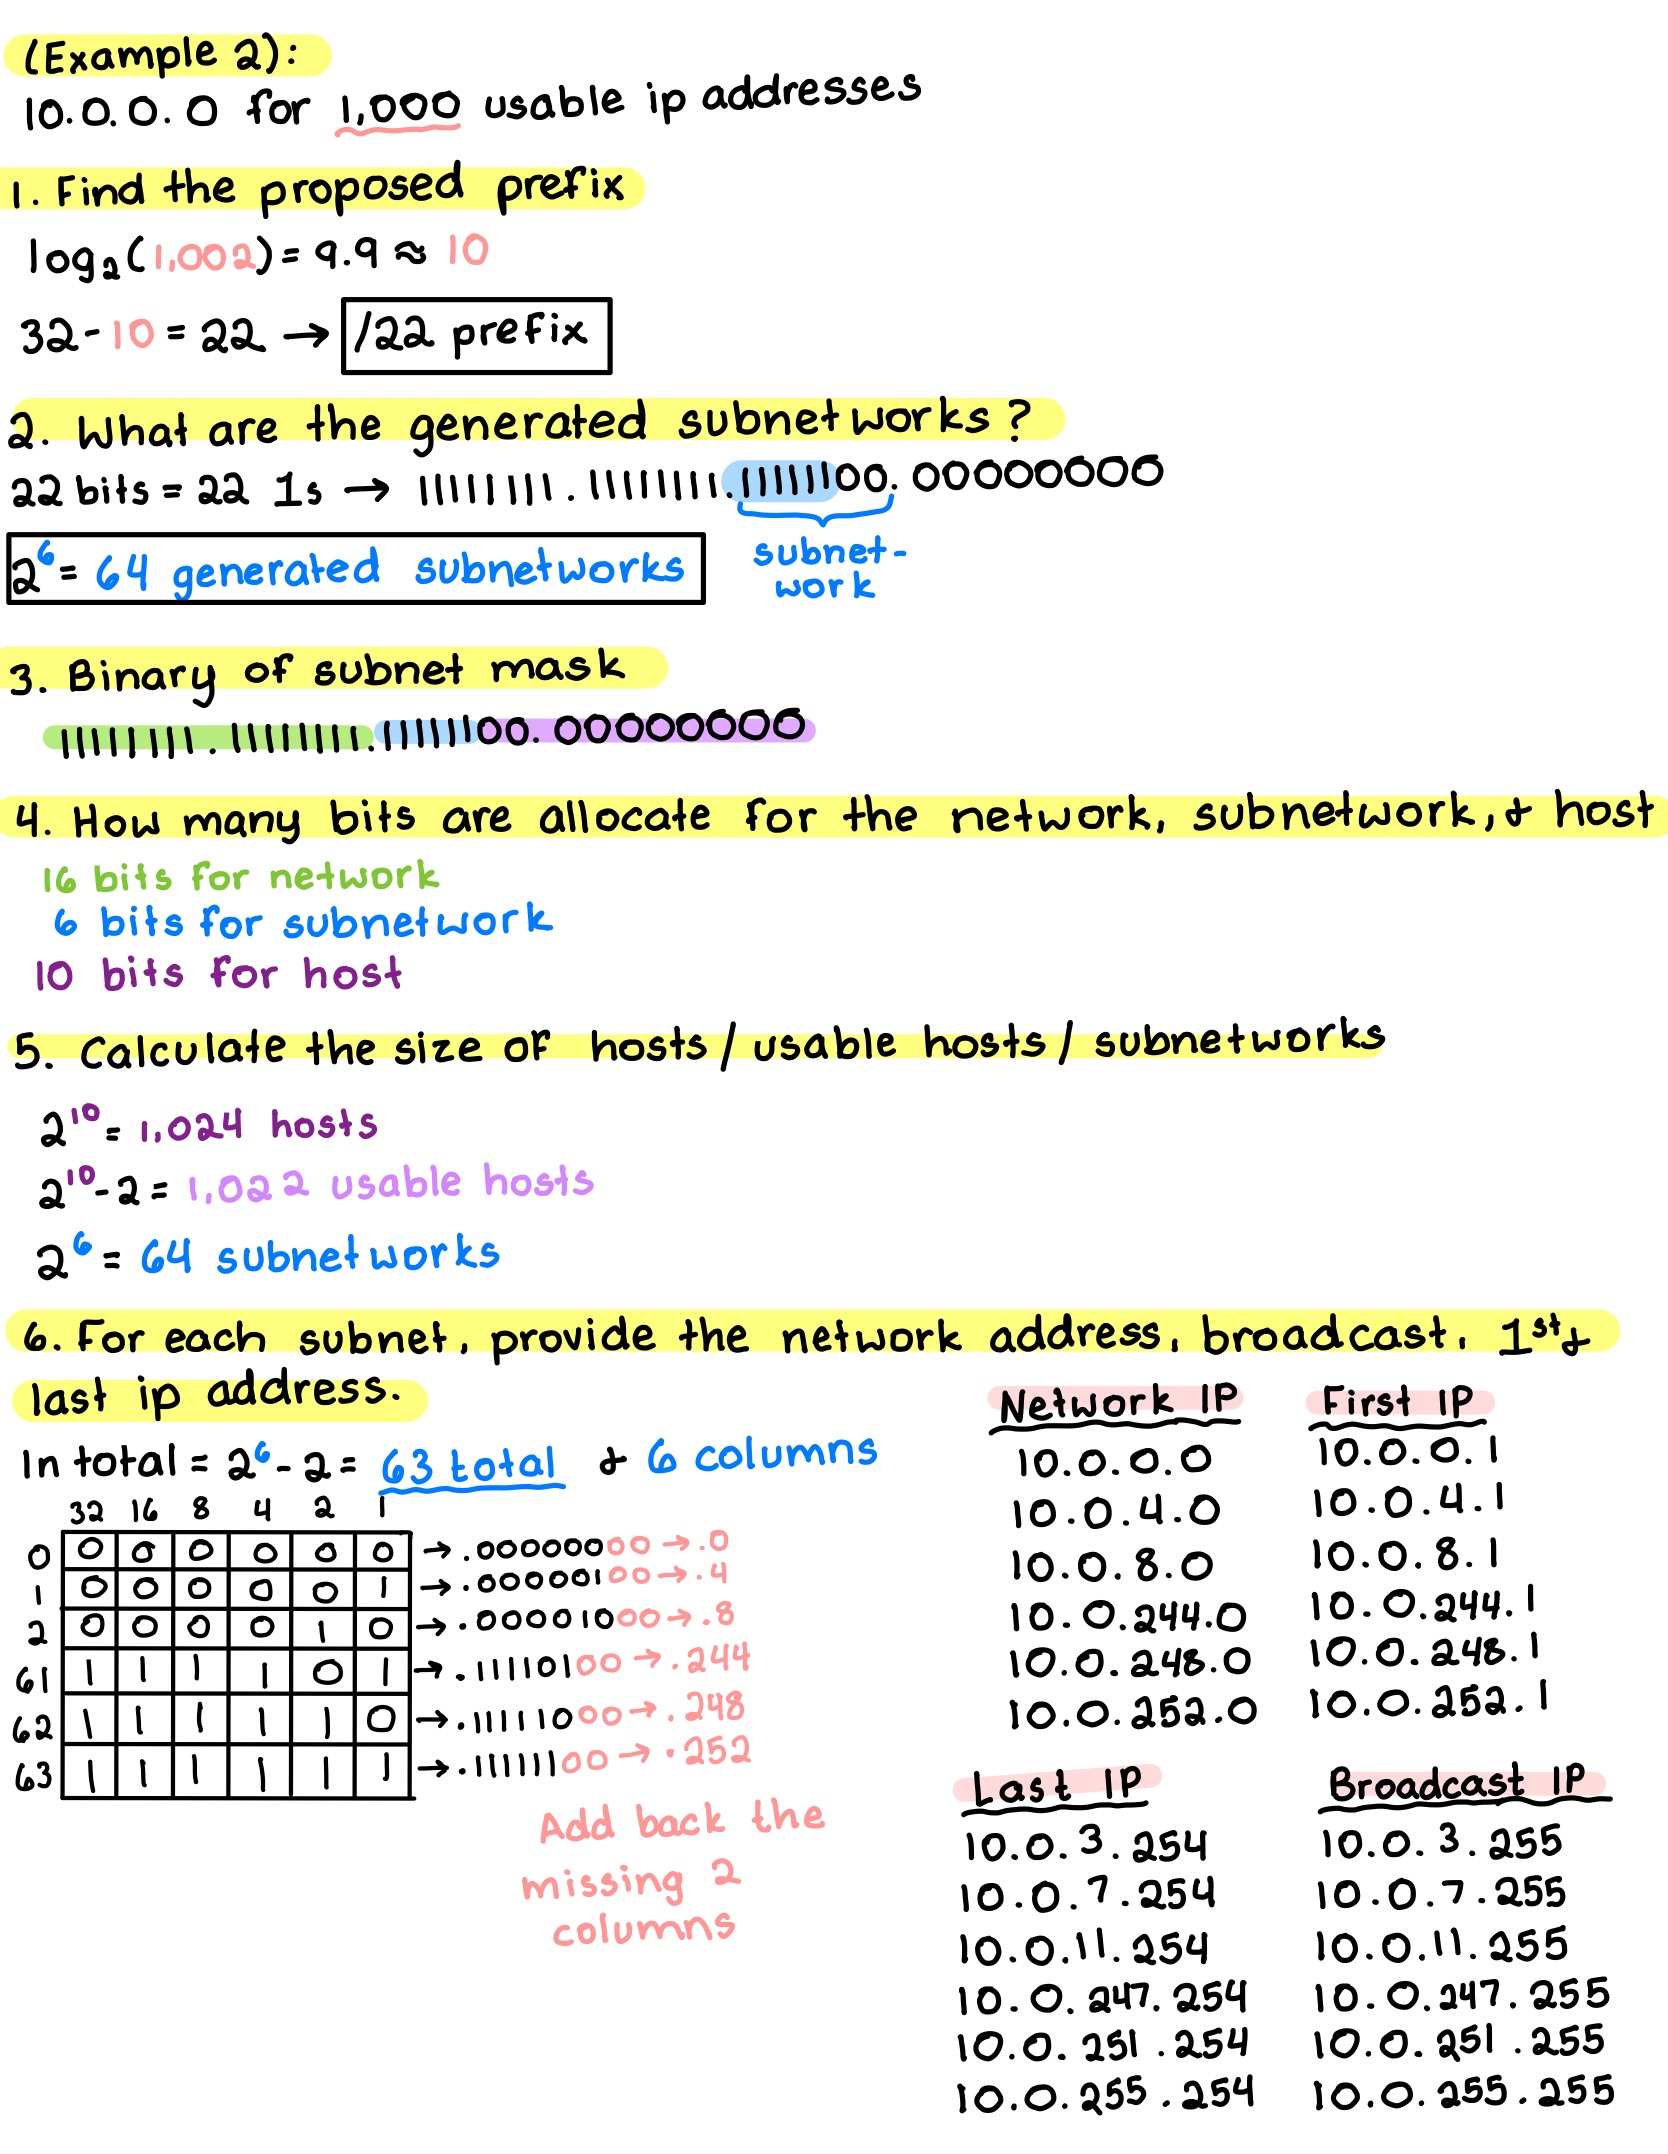 (Example 2):
10.0.0.0 for 1,000 usable ip addresses
1. Find the proposed prefix
log₂(1,002) = 9.9 ≈ 10
32 - 10 = 22 → /22 prefix
2. What are the generated subnetworks?
22 bits = 22 1s → 11111111.11111111.11111100.00000000
subnet-
work
2⁶ = 64 generated subnetworks
3. Binary of subnet mask
11111111.11111111.11111100.00000000
4. How many bits are allocate for the network, subnetwork, & host
16 bits for network
6 bits for subnetwork
10 bits for host
5. Calculate the size of hosts / usable hosts / subnetworks
2¹⁰ = 1,024 hosts
2¹⁰ - 2 = 1,022 usable hosts
2⁶ = 64 subnetworks
6. For each subnet, provide the network address, broadcast, 1st &
last ip address.
In total = 2⁶ - 2 = 63 total & 6 columns
32 16 8 4 2 1
0 0 0 0 0 0 0 → .00000000 → .0
1 0 0 0 0 0 1 → .00000100 → .4
2 0 0 0 0 1 0 → .00001000 → .8
61 1 1 1 1 0 1 → .11110100 → .244
62 1 1 1 1 1 0 → .11111000 → .248
63 1 1 1 1 1 1 → .11111100 → .252
Add back the
missing 2
columns
Network IP
10.0.0.0
10.0.4.0
10.0.8.0
10.0.244.0
10.0.248.0
10.0.252.0
First IP
10.0.0.1
10.0.4.1
10.0.8.1
10.0.244.1
10.0.248.1
10.0.252.1
Last IP
10.0.3.254
10.0.7.254
10.0.11.254
10.0.247.254
10.0.251.254
10.0.255.254
Broadcast IP
10.0.3.255
10.0.7.255
10.0.11.255
10.0.247.255
10.0.251.255
10.0.255.255